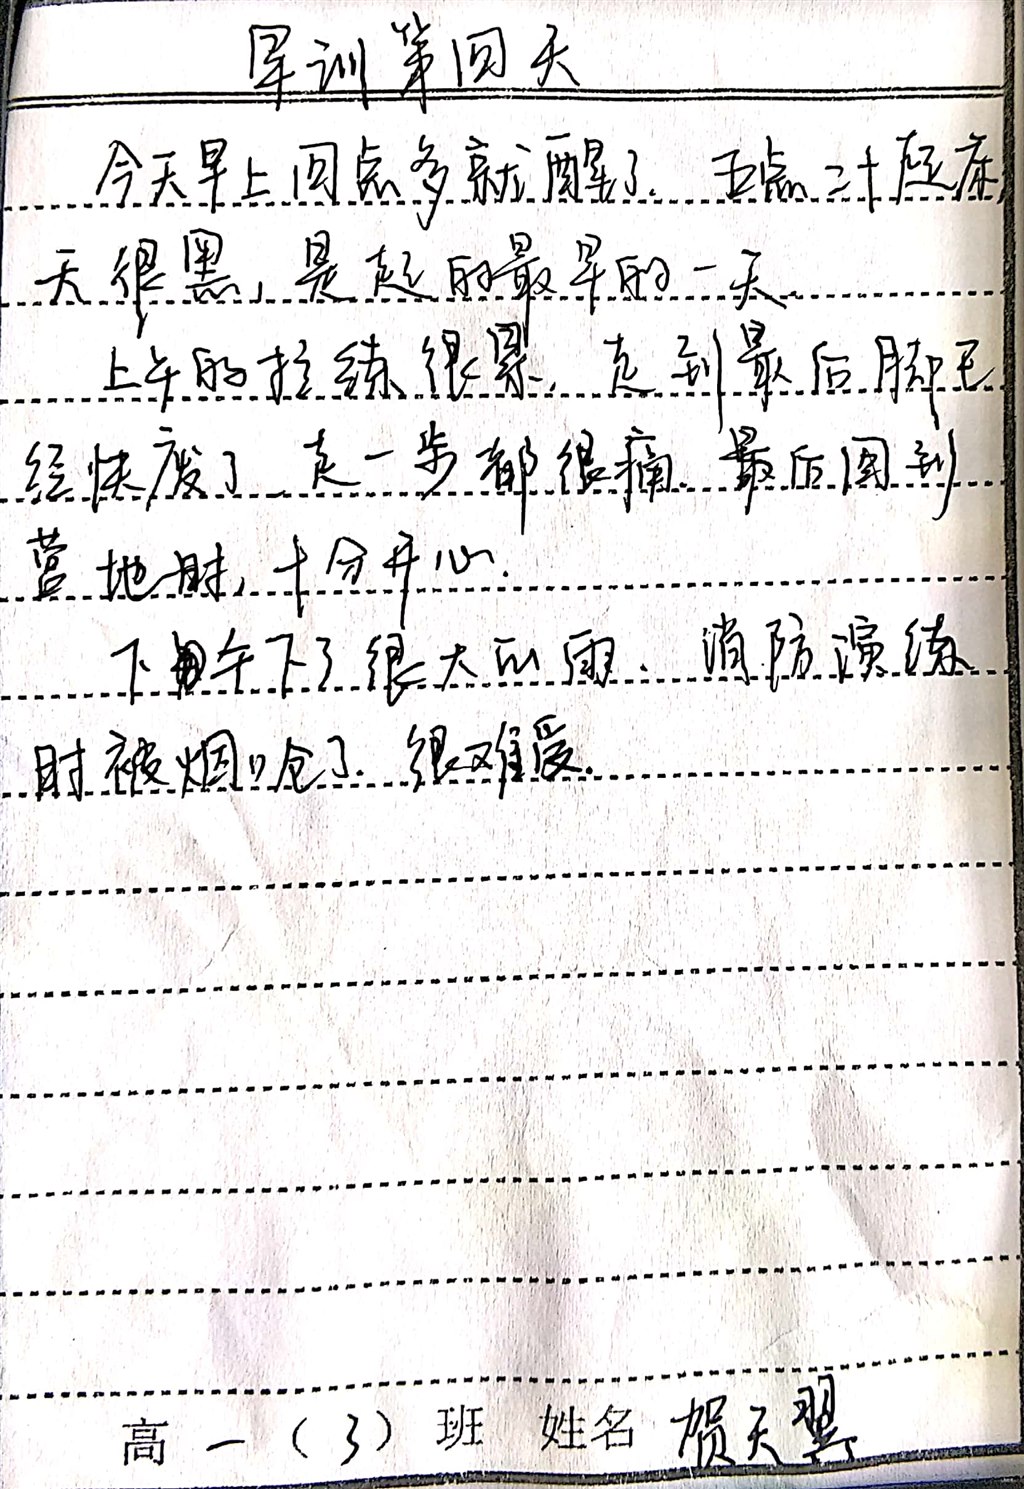 军训第四天
今天早上四点多就醒了.五点二十起床,
天很黑,是起的最早的一天.
上午的拉练很累,走到最后脚已
经快废了,走一步都很痛.最后回到
营地时,十分开心.
下午下了很大的雨.消防演练
时被烟呛了.很难受.
高一(3)班 姓名 贺天翼